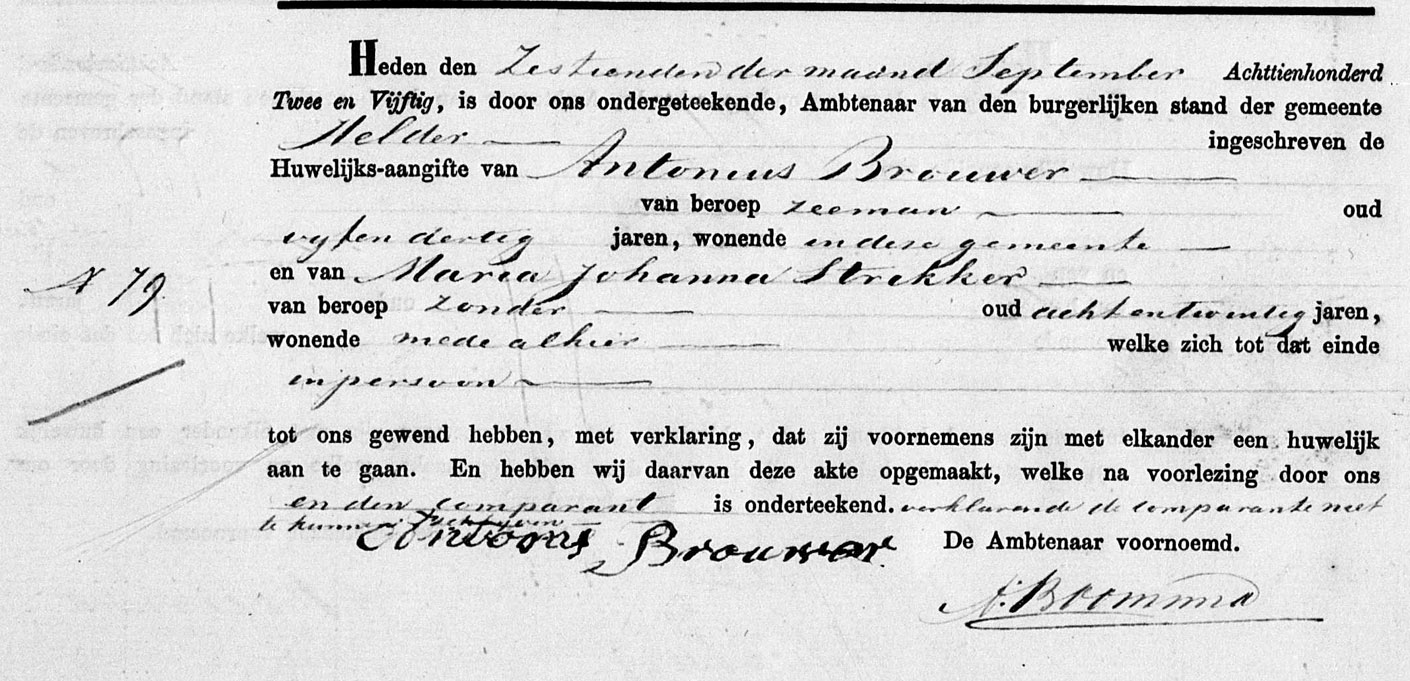 Heden den Zestienden der maand September Achttienhonderd
Twee en Vijftig, is door ons ondergeteekende, Ambtenaar van den burgerlijken stand der gemeente
Helder ingeschreven de
Huwelijks-aangifte van Antonius Brouwer
van beroep zeeman oud
vijfendertig jaren, wonende in deze gemeente
en van Maria Johanna Strekker
N 79
van beroep zonder oud achtentwintig jaren,
wonende mede alhier welke zich tot dat einde
in persoon
tot ons gewend hebben, met verklaring, dat zij voornemens zijn met elkander een huwelijk
aan te gaan. En hebben wij daarvan deze akte opgemaakt, welke na voorlezing door ons
en den comparant is onderteekend. verklarende de comparante niet
te kunnen schrijven
Brouwer De Ambtenaar voornoemd.